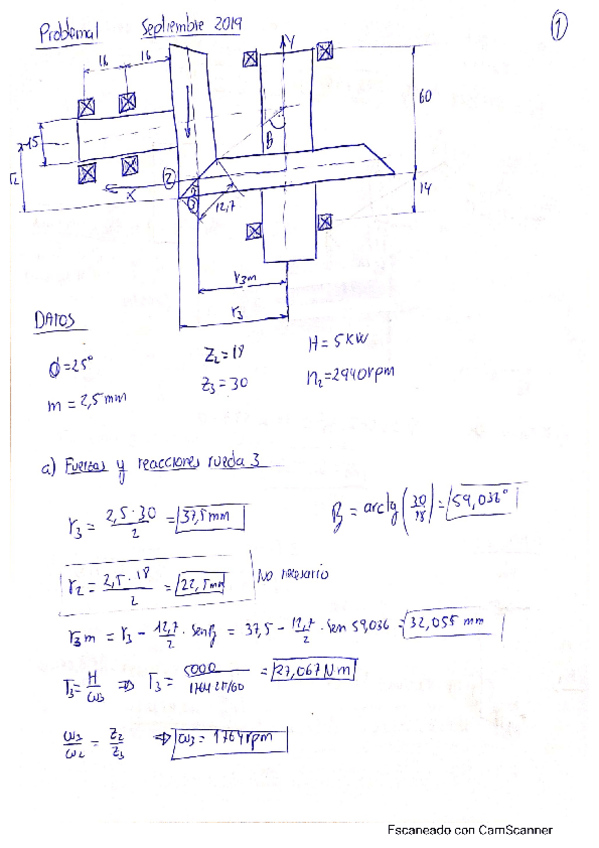 Problema 1 Septiembre 2019
1
16 16
Y
60
B
15
r2
2
X
3
12,7
14
r3m
r3
DATOS
ϕ=25°
Z2=18
H=5KW
m=2,5mm
Z3=30
n2=2940rpm
a) Fuerzas y reacciones rueda 3
r3 = 2,5·30/2 = 37,5mm
B = arctg(30/18) = 59,036°
r2 = 2,5·18/2 = 22,5mm No necesario
r3m = r3 - 12,7/2 · senβ = 37,5 - 12,7/2 · sen 59,036 = 32,055 mm
T3 = H/ω3 ⇒ T3 = 5000/1764 2π/60 = 27,067Nm
ω3/ω2 = Z2/Z3 ⇒ ω3 = 1764rpm
Escaneado con CamScanner